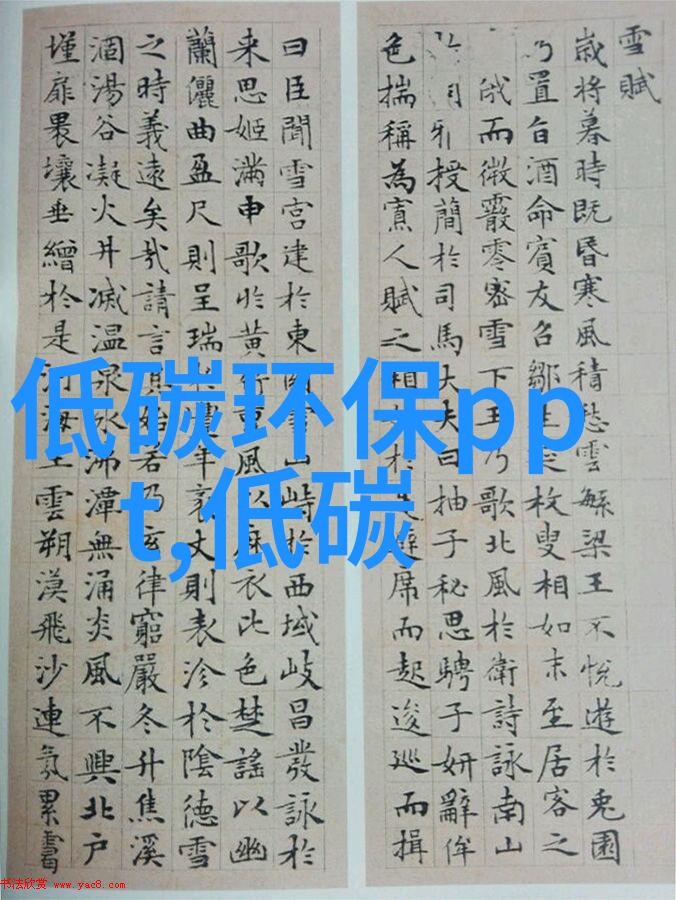 雪賦
歲将暮時既昏寒風積愁雲繁梁王不悅遊於兎園
乃置旨酒命賓友召鄒生延枚叟相如末至居客之
俄而微霰零密雪下王乃歌北風於衛詩詠南山
授簡於司馬大夫曰抽子秘思騁子妍辭侔
色揣稱為寡人賦之相於避席而起逡巡而揖
曰臣聞雪宮建於東國雪山峙於西域岐昌發詠於
来思姬滿申歌於黃竹曹風以麻衣比色楚謠以幽
蘭儷曲盈尺則呈瑞於豊年袤丈則表沴於陰德雪
之時義遠矣哉請言其始若乃玄律窮嚴冬升焦溪
涸湯谷凝火井滅温泉冰沸潭無涌炎風不興北户
墐扉裸壤垂繒於是河海生雲朔漠飛沙連氛累靄
低碳环保pp
t,低碳
书法欣赏 www.yac8.com